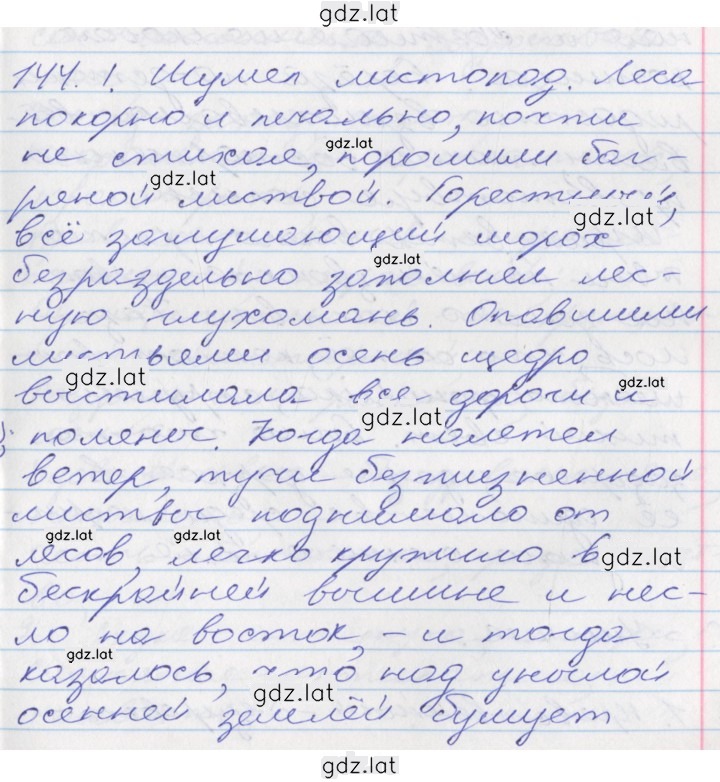 gdz.lat
144. 1. Шумел листопад. Леса
покорно и печально, почти
не стихая, порошили баг-
gdz.lat
gdz.lat
ряной листвой. Горестный,
gdz.lat
всё заглушающий шорох
gdz.lat
безраздельно заполнял лес-
ную глухомань. Опавшими
листьями осень щедро
gdz.lat
gdz.lat
выстилала все дороги и
gdz.lat
поляны. Когда налетел
ветер, тучи безжизненной
листвы поднимало от
gdz.lat
gdz.lat
лесов, легко кружило в
gdz.lat
бескрайней вышине и нес-
ло на восток, – и тогда
gdz.lat
казалось, что над унылой
gdz.lat
осенней землёй бушует
gdz.lat